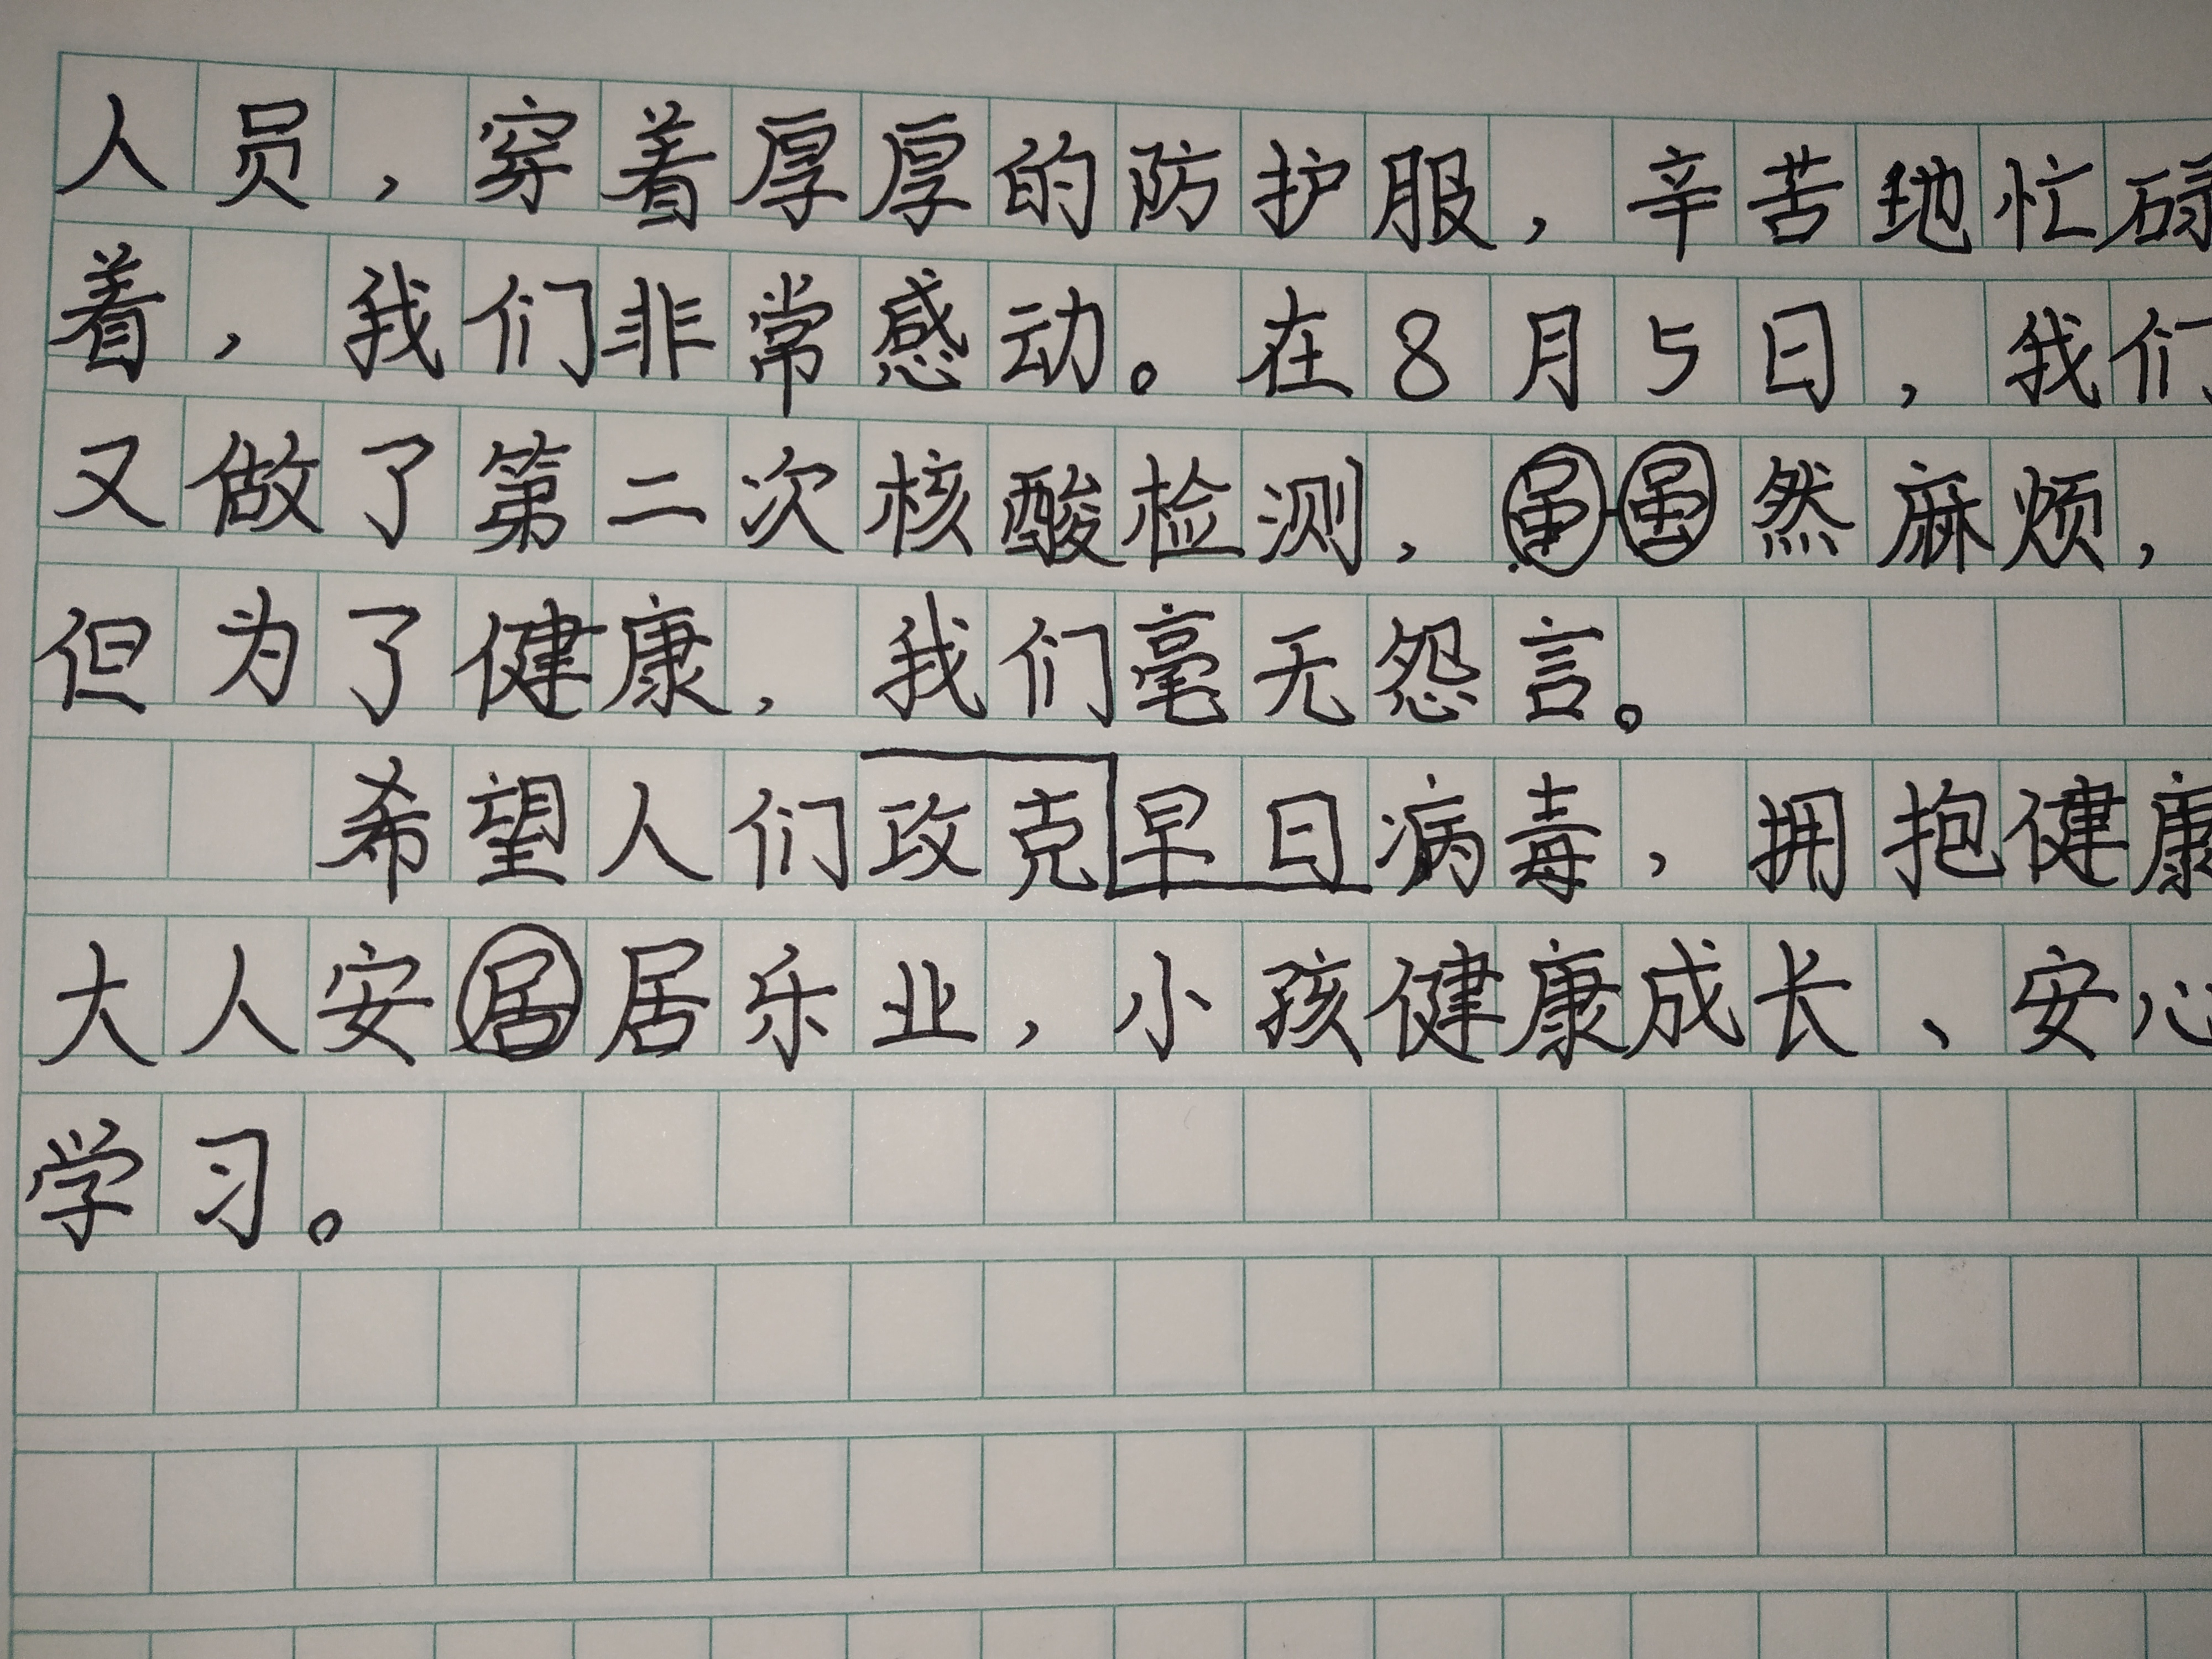 人员，穿着厚厚的防护服，辛苦地忙碌
着，我们非常感动。在8月5日，我们
又做了第二次核酸检测，虽虽然麻烦，
但为了健康，我们毫无怨言。
希望人们攻克早日病毒，拥抱健康
大人安居居乐业，小孩健康成长、安心
学习。